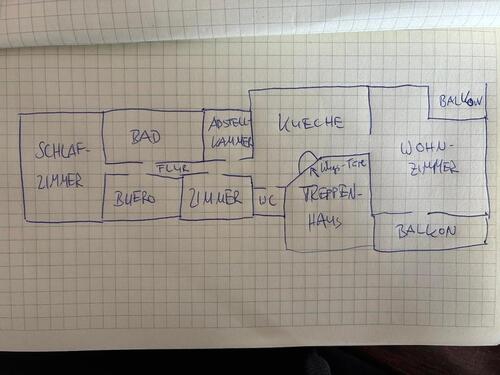 BALKON
ABSTELL-
KAMMER
KUECHE
BAD
SCHLAF-
ZIMMER
WOHN-
ZIMMER
FLUR
BUERO
ZIMMER
WC
TREPPEN-
HAUS
BALKON